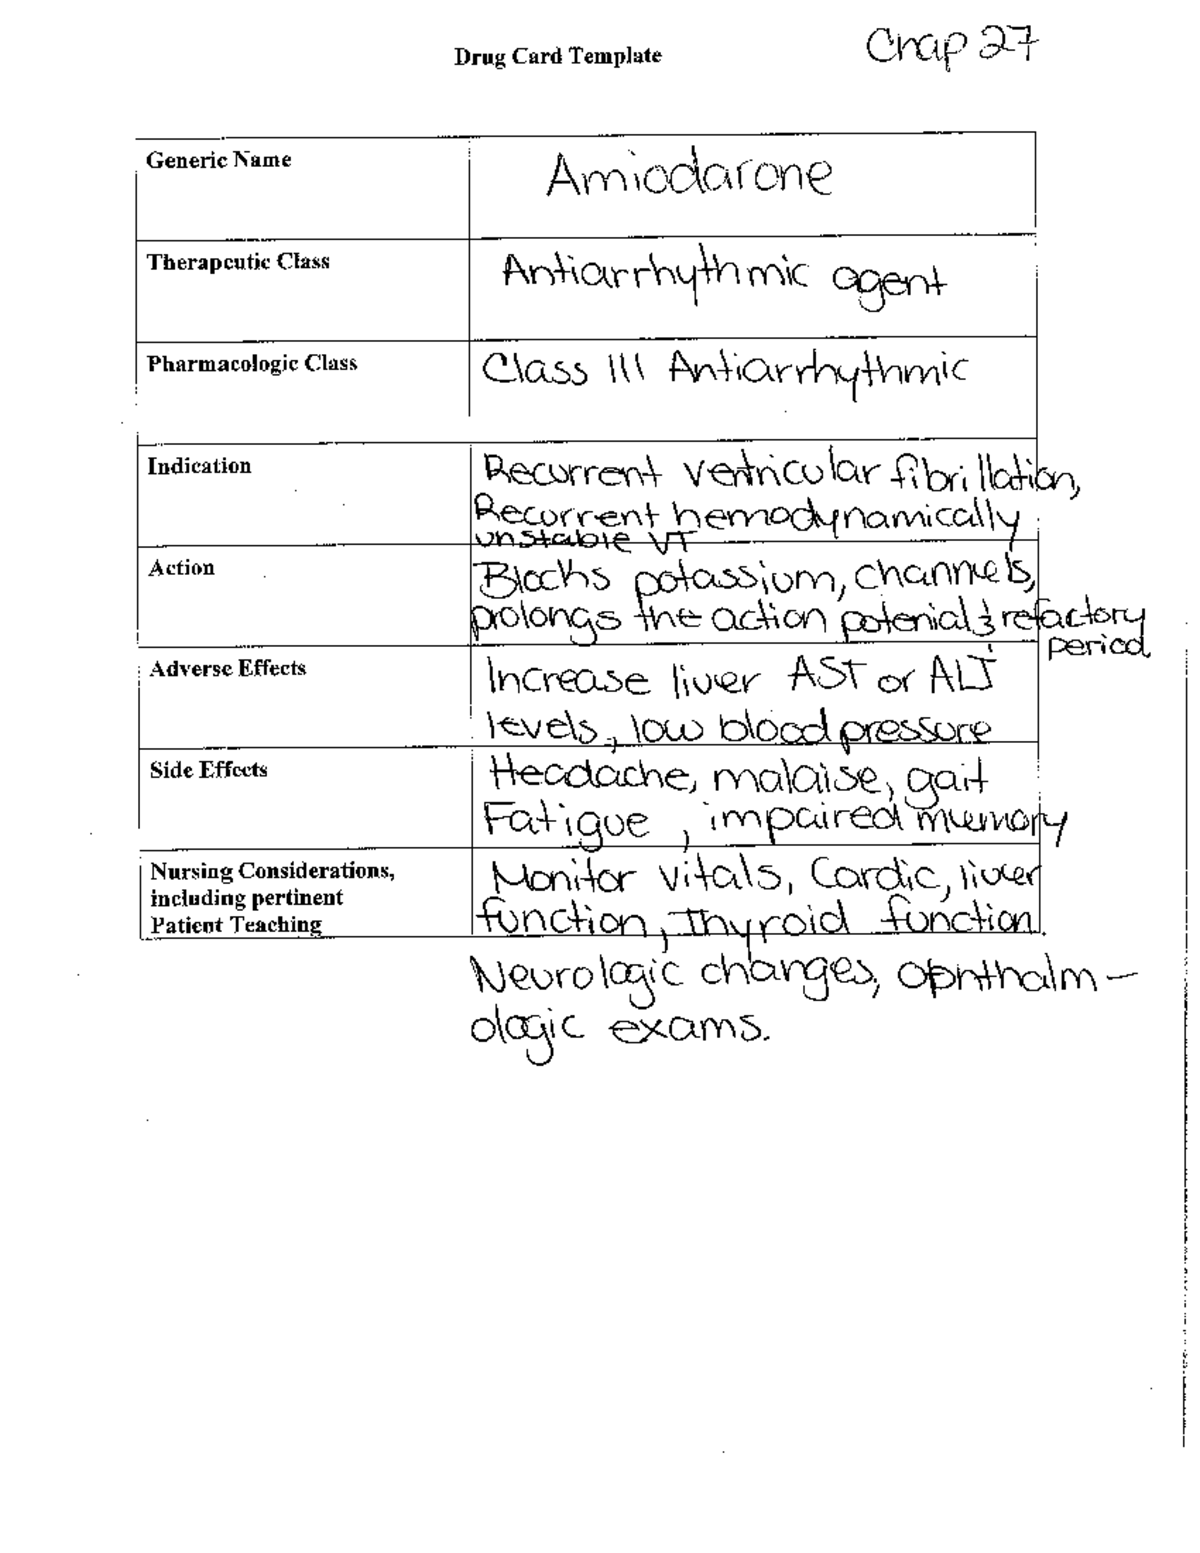 Drug Card Template
Chap 27
Generic Name
Amiodarone
Therapeutic Class
Antiarrhythmic agent
Pharmacologic Class
Class III Antiarrhythmic
Indication
Recurrent ventricular fibrillation,
Recurrent hemodynamically
unstable VT
Action
Blocks potassium, channels,
prolongs the action potenial & refactory
period
Adverse Effects
Increase liver AST or ALT
levels, low blood pressure
Side Effects
Headache, malaise, gait
Fatigue, impaired memory
Nursing Considerations,
including pertinent
Patient Teaching
Monitor vitals, Cardic, liver
function, Thyroid function.
Neurologic changes, Ophthalm-
ologic exams.